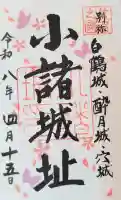 別称
白鶴城 酔月城 穴城
小諸城址
令和八年四月十五日